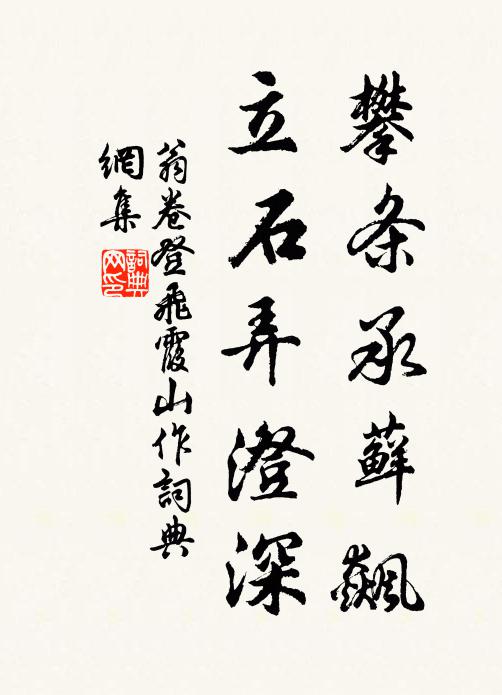 攀条承蘚飆
立石弄澄深
翁卷登飛霞山作詞典
網集
詞典
网印